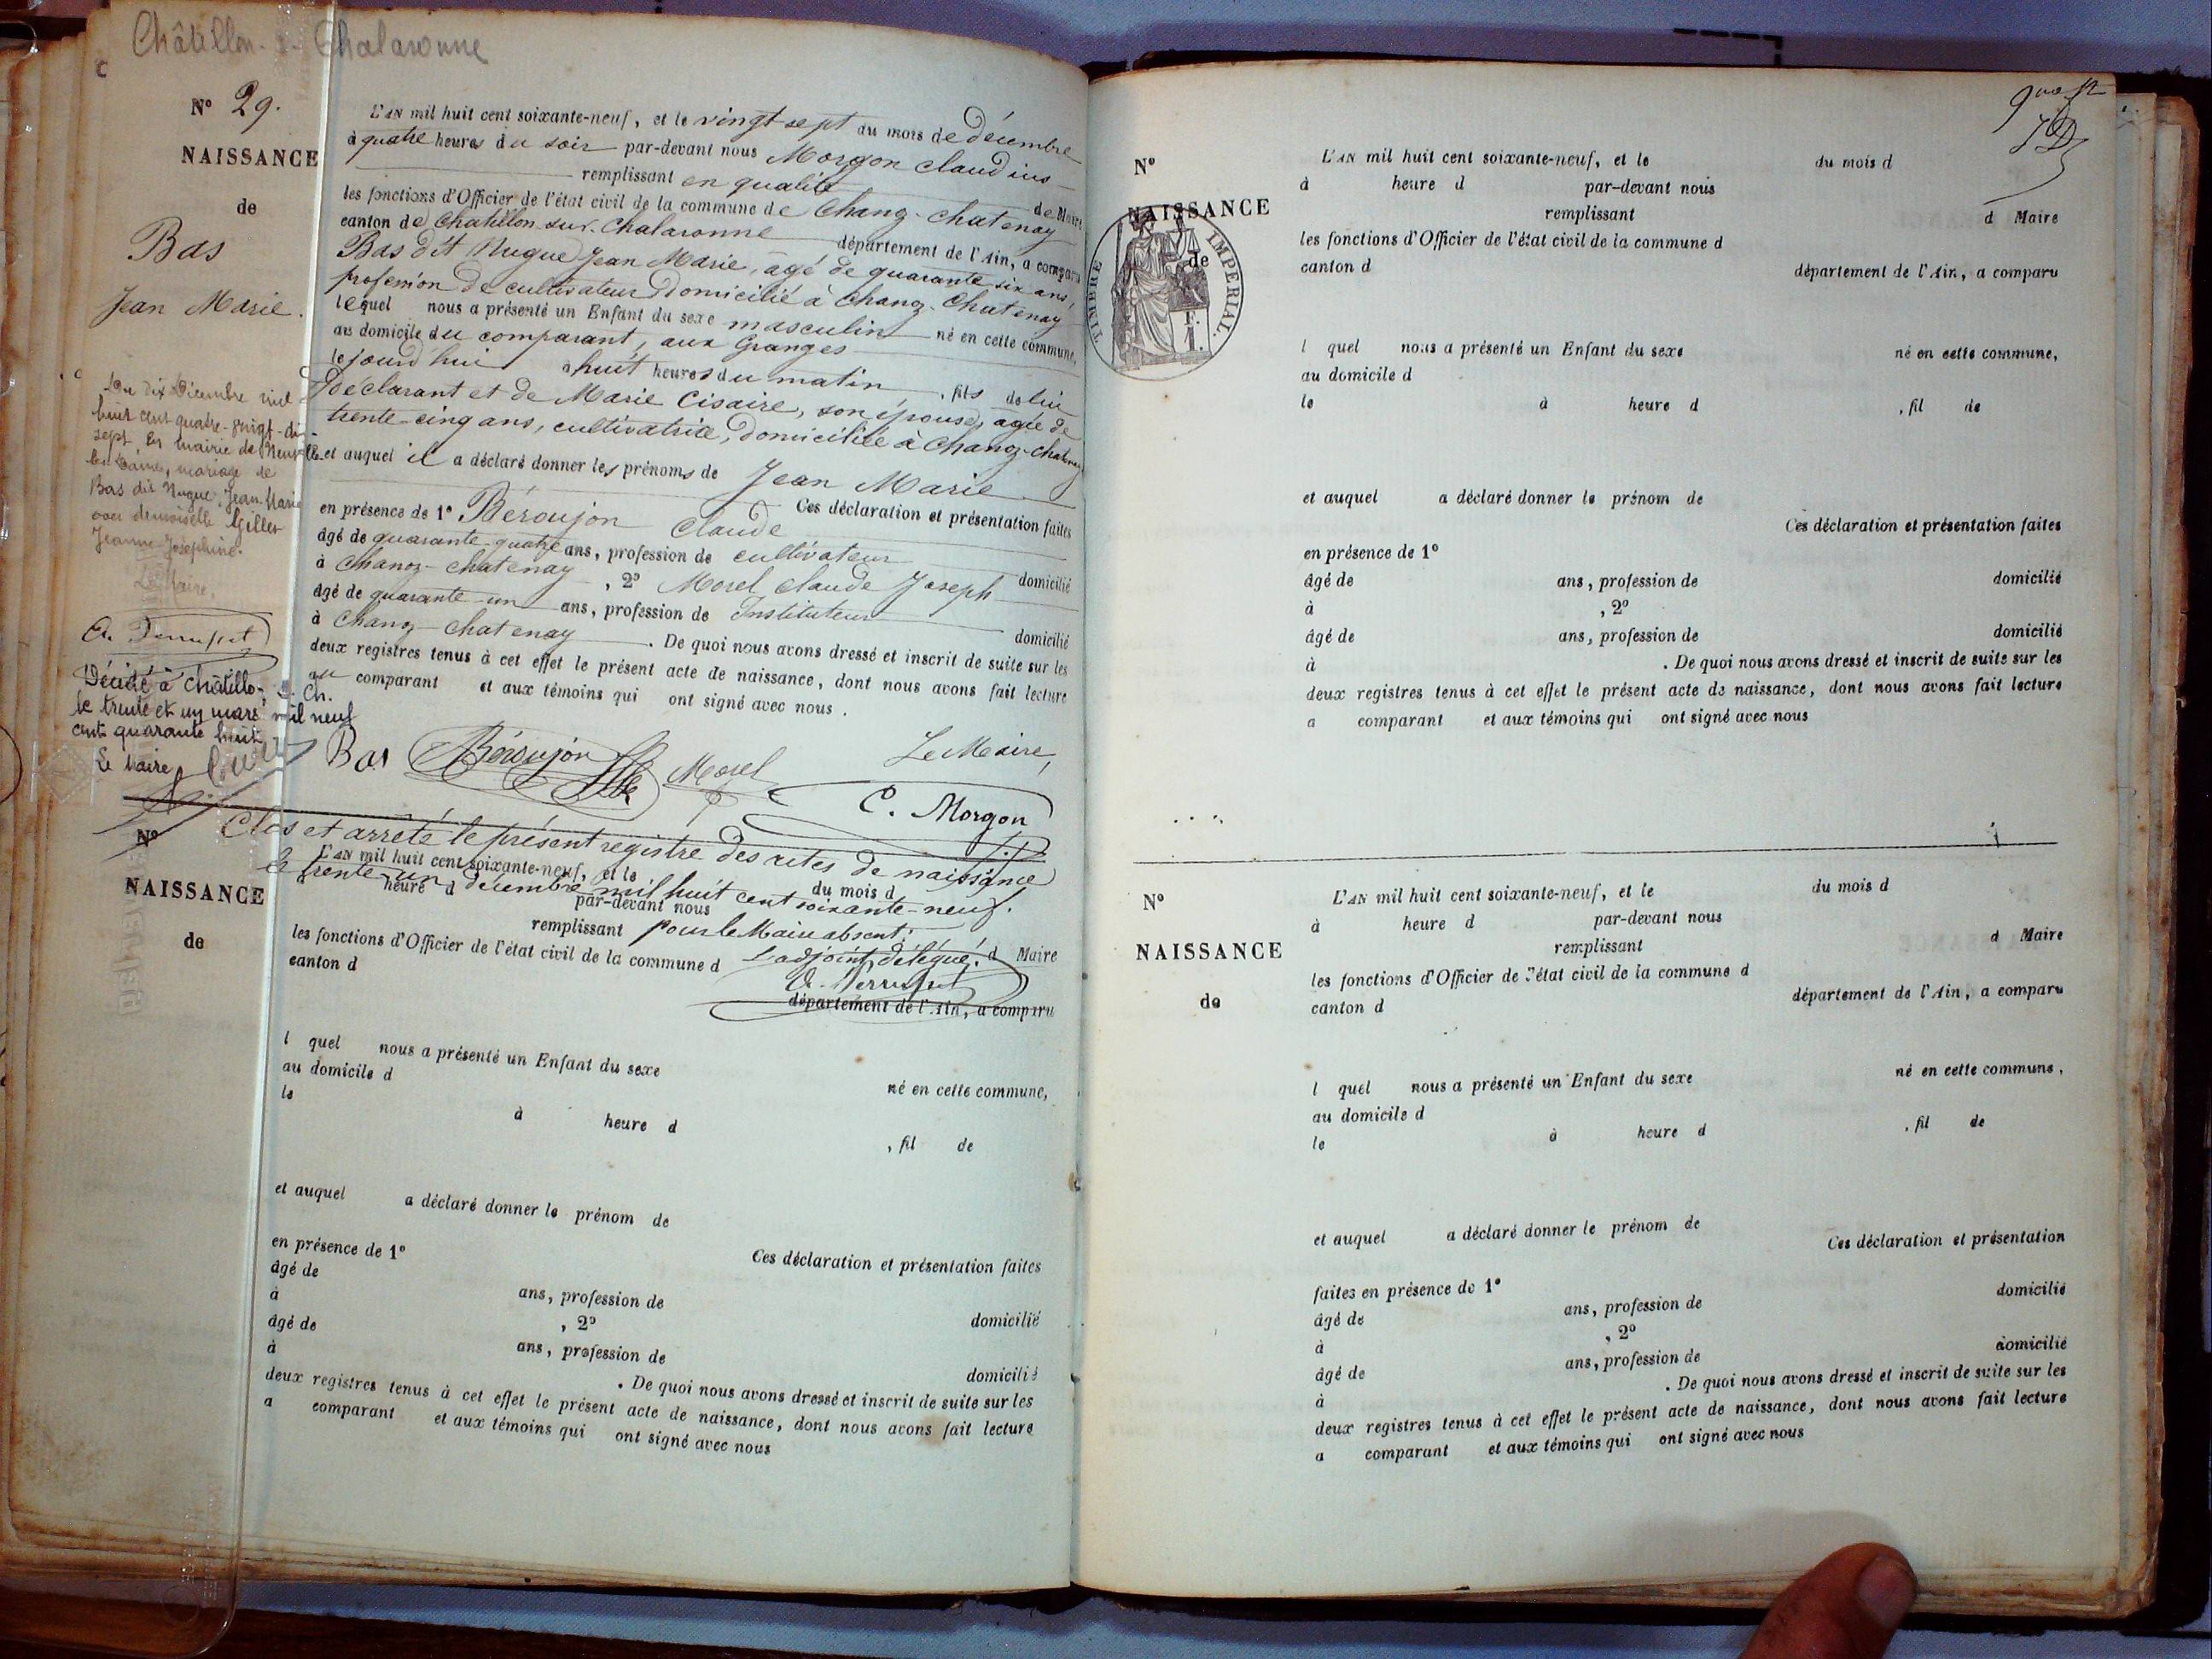 Châtillon-s-Chalaronne
Nº 29.
NAISSANCE
de
Bas
Jean Marie.
L'AN mil huit cent soixante-neuf, et le vingt sept du mois de décembre
à quatre heures du soir par-devant nous Morgon Claudius
remplissant en qualité de Maire
les fonctions d'Officier de l'état civil de la commune de Chanoz-Chatenay
canton de Chatillon-sur-Chalaronne département de l'Ain, a comparu
Bas dit Nugue Jean Marie, âgé de quarante six ans,
profession de cultivateur domicilié à Chanoz-Chatenay
lequel nous a présenté un Enfant du sexe masculin né en cette commune,
au domicile du comparant, aux Granges
le jourd'hui à huit heures du matin, fils de lui
déclarant et de Marie Cisaire, son épouse, agée de
trente-cinq ans, cultivatrice, domiciliée à Chanoz-Chatenay
et auquel il a déclaré donner les prénoms de Jean Marie
Ces déclaration et présentation faites
en présence de 1º Béroujon Claude
âgé de quarante-quatre ans, profession de cultivateur domicilié
à Chanoz-Chatenay, 2º Morel Claude Joseph
âgé de quarante-un ans, profession de Instituteur domicilié
à Chanoz-Chatenay. De quoi nous avons dressé et inscrit de suite sur les
deux registres tenus à cet effet le présent acte de naissance, dont nous avons fait lecture
au comparant et aux témoins qui ont signé avec nous.
Bas Béroujon Morel Le Maire,
C. Morgon
Dix Décembre mil
huit cent quatre-vingt-dix
sept, en mairie de Neuville
les Dames, mariage de
Bas dit Nugue, Jean Marie
avec demoiselle Gillet
Jeanne Joséphine.
Le Maire,
Décédé à Châtillon-s-Ch.
le trente et un mars mil neuf
cent quarante huit
Le Maire
Clos et arrêté le présent registre des actes de naissance
le trente-un décembre mil huit cent soixante-neuf.
pour le Maire absent:
l'adjoint délégué,
Nº
NAISSANCE
de
L'AN mil huit cent soixante-neuf, et le du mois d
heure d par-devant nous
remplissant d Maire
les fonctions d'Officier de l'état civil de la commune d
canton d département de l'Ain, a comparu
l quel nous a présenté un Enfant du sexe né en cette commune,
au domicile d
le à heure d , fil de
et auquel a déclaré donner le prénom de
Ces déclaration et présentation faites
en présence de 1º
âgé de ans, profession de domicilié
à , 2º
âgé de ans, profession de domicilié
à . De quoi nous avons dressé et inscrit de suite sur les
deux registres tenus à cet effet le présent acte de naissance, dont nous avons fait lecture
a comparant et aux témoins qui ont signé avec nous
Nº
NAISSANCE
de
TIMBRE IMPÉRIAL.
1 F.
L'AN mil huit cent soixante-neuf, et le du mois d
à heure d par-devant nous
remplissant d Maire
les fonctions d'Officier de l'état civil de la commune d
canton d département de l'Ain, a comparu
l quel nous a présenté un Enfant du sexe né en cette commune,
au domicile d
le à heure d , fil de
et auquel a déclaré donner le prénom de
Ces déclaration et présentation faites
en présence de 1º
âgé de ans, profession de domicilié
à , 2º
âgé de ans, profession de domicilié
à . De quoi nous avons dressé et inscrit de suite sur les
deux registres tenus à cet effet le présent acte de naissance, dont nous avons fait lecture
a comparant et aux témoins qui ont signé avec nous
Nº
NAISSANCE
de
L'AN mil huit cent soixante-neuf, et le du mois d
à heure d par-devant nous
remplissant d Maire
les fonctions d'Officier de l'état civil de la commune d
canton d département de l'Ain, a comparu
l quel nous a présenté un Enfant du sexe né en cette commune,
au domicile d
le à heure d , fil de
et auquel a déclaré donner le prénom de
Ces déclaration et présentation
faites en présence de 1º
âgé de ans, profession de domicilié
à , 2º
âgé de ans, profession de domicilié
à . De quoi nous avons dressé et inscrit de suite sur les
deux registres tenus à cet effet le présent acte de naissance, dont nous avons fait lecture
a comparant et aux témoins qui ont signé avec nous